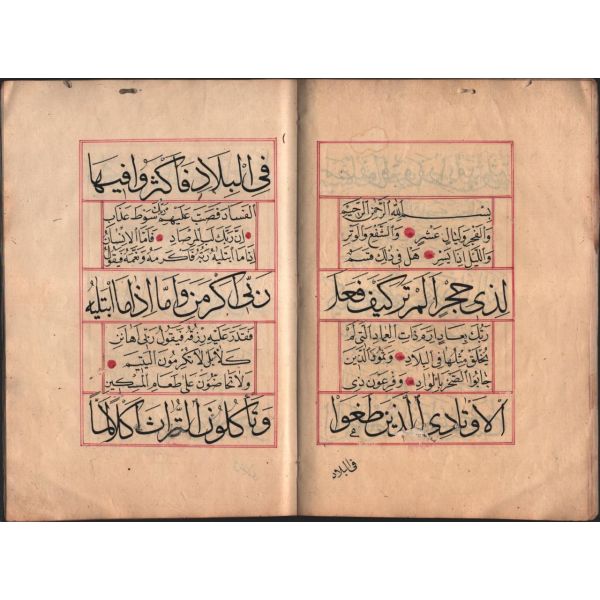 بسم الله الرحمن الرحيم
والفجر وليال عشر والشفع والوتر
والليل اذا يسر هل في ذلك قسم
لذى حجر الم تر كيف فعل
ربك بعاد ارم ذات العماد التى لم
يخلق مثلها في البلاد وثمود الذين
جابوا الصخر بالواد وفرعون ذى
الاوتاد الذين طغوا
فى البلاد
فى البلاد فاكثروا فيها
الفساد فصب عليهم ربك سوط عذاب
ان ربك لبالمرصاد فاما الانسان
اذا ما ابتليه ربه فاكرمه ونعمه فيقول
ربى اكرمن واما اذا ما ابتليه
فقدر عليه رزقه فيقول ربى اهانن
كلا بل لا تكرمون اليتيم
ولا تحاضون على طعام المسكين
وتأكلون التراث اكلا لما